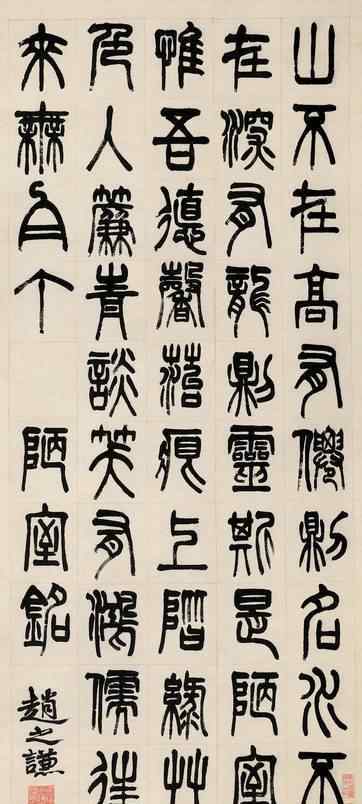 山不在高有僊則名水不
在深有龍則靈斯是陋室
惟吾德馨苔痕上階綠艸
色人簾青談笑有鴻儒往
來無白丁 陋室銘
趙之謙